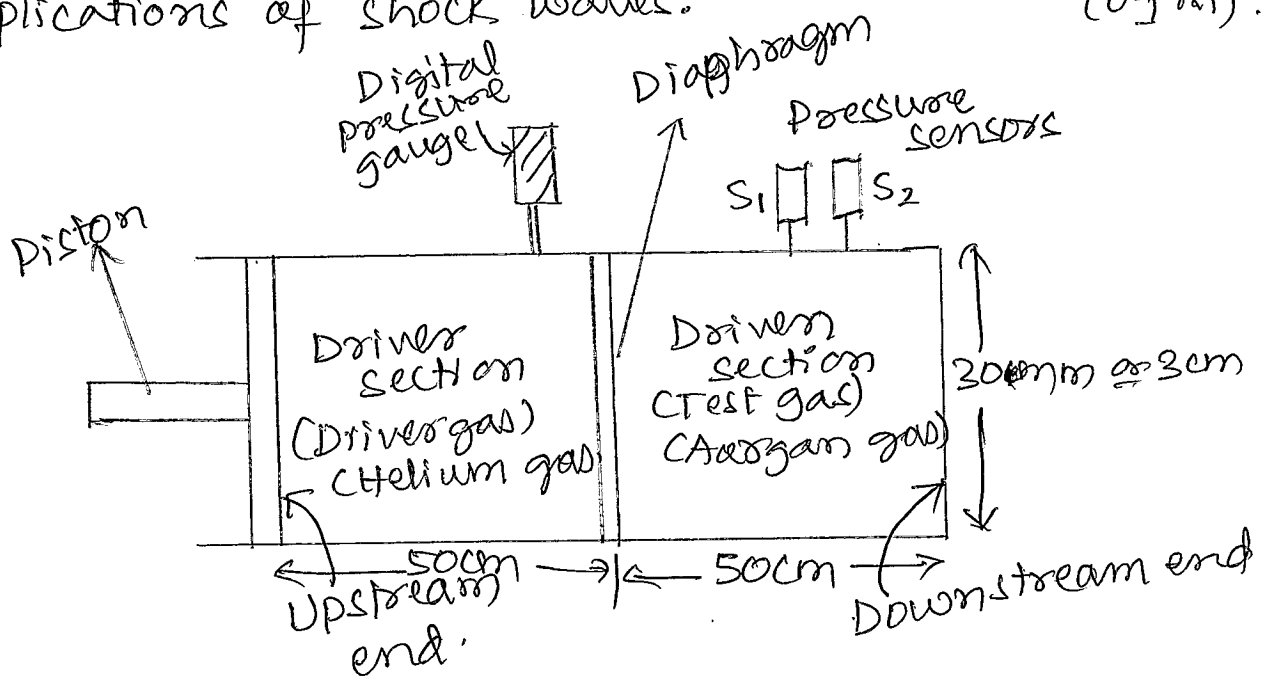 plications of shock waves.
Digital
pressure
gauge
Diaphragm
Pressure
sensors
S1
S2
Piston
Driver
section
(Driver gas)
(Helium gas)
Driven
section
(Test gas)
(Aargan gas)
30mm or 3cm
50cm
50cm
Upstream
end.
Downstream end